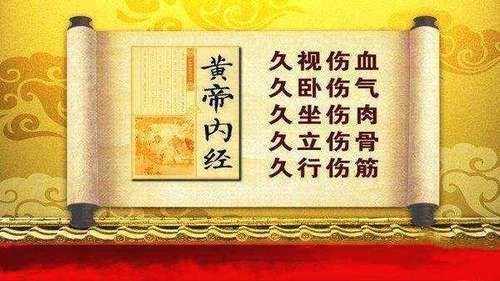 黄帝内经
久视伤血
久卧伤气
久坐伤肉
久立伤骨
久行伤筋